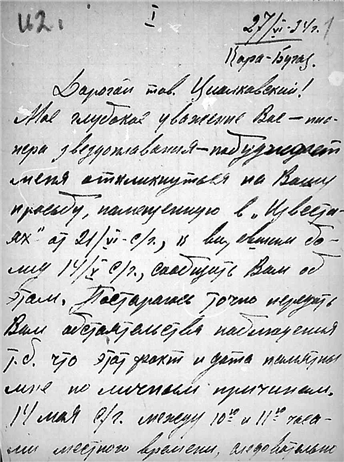 I
27/VI-34г.
Кара-Бугаз.
Дорогой тов. Циолковский!
Мое глубокое уважение Вас – пио-
нера звездоплавания – побуждает
меня откликнуться на Вашу
просьбу, помещенную в „Известi-
ях" от 21/VI-с/г,
му 14/V с/г, сообщить Вам об
этом. Постараюсь точно передать
Вам обстоятельства наблюдения
т.б. что этот факт и дата памятны
мне по личным причинам.
14 мая с/г. между 10 и 11 часа-
ми местного времени, следовательно